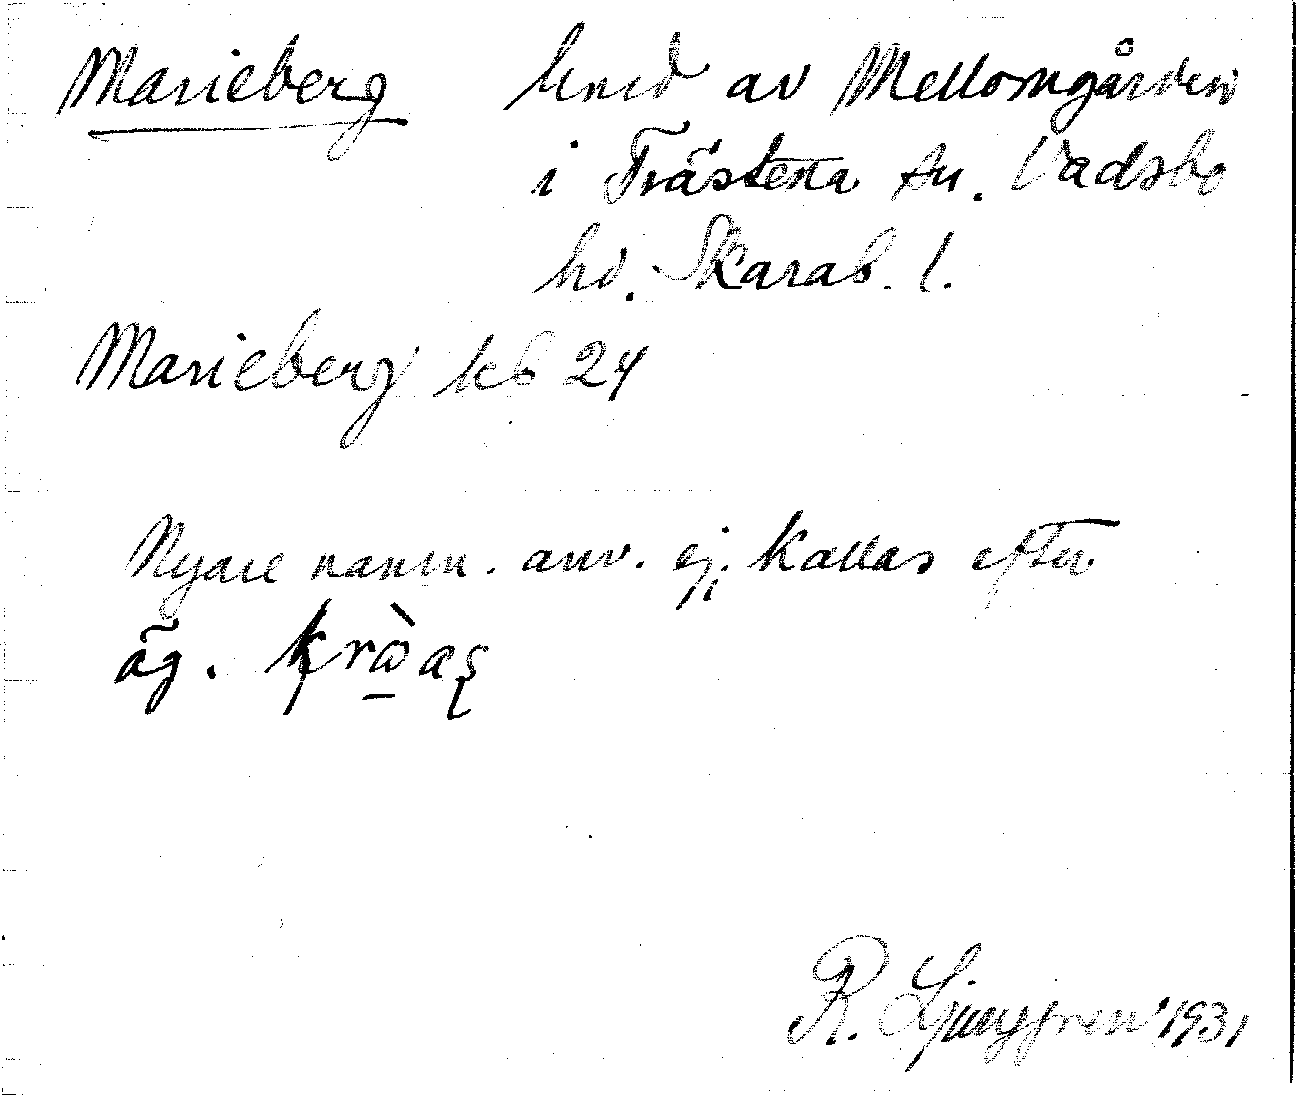 Marieberg hmd av Mellomgården
i Trästena sn. Vadsbo
hd. Skarab. l.
Marieberg kb 24
Nyare namn. anv. ej. Kallas efter
äg.
R. Ljunggren 1931